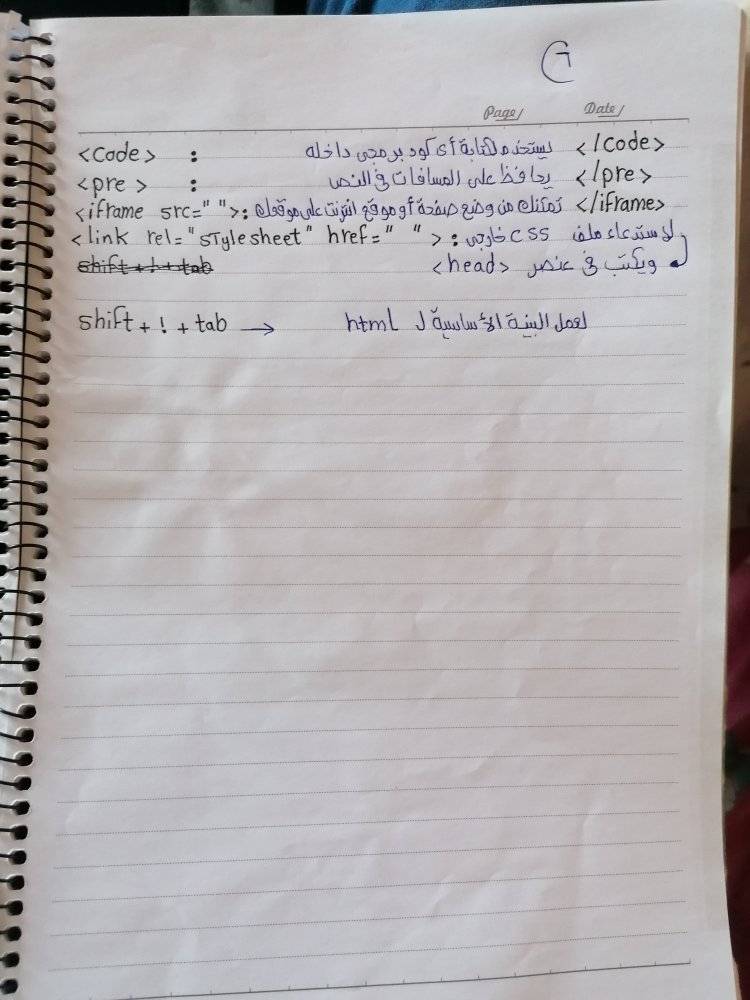 6
Page/ Date/
<code> : يستخدم لكتابة أي كود برمجي داخله </code>
<pre> : يحافظ على المسافات في النص </pre>
<iframe src=" ">: تمكنك من وضع صفحة أو موقع انترنت على موقعك </iframe>
<link rel="stylesheet" href=" "> : لاستدعاء ملف css خارجي
shift + ! + tab ويكتب في عنصر <head>
shift + ! + tab → لعمل البنية الأساسية ل html